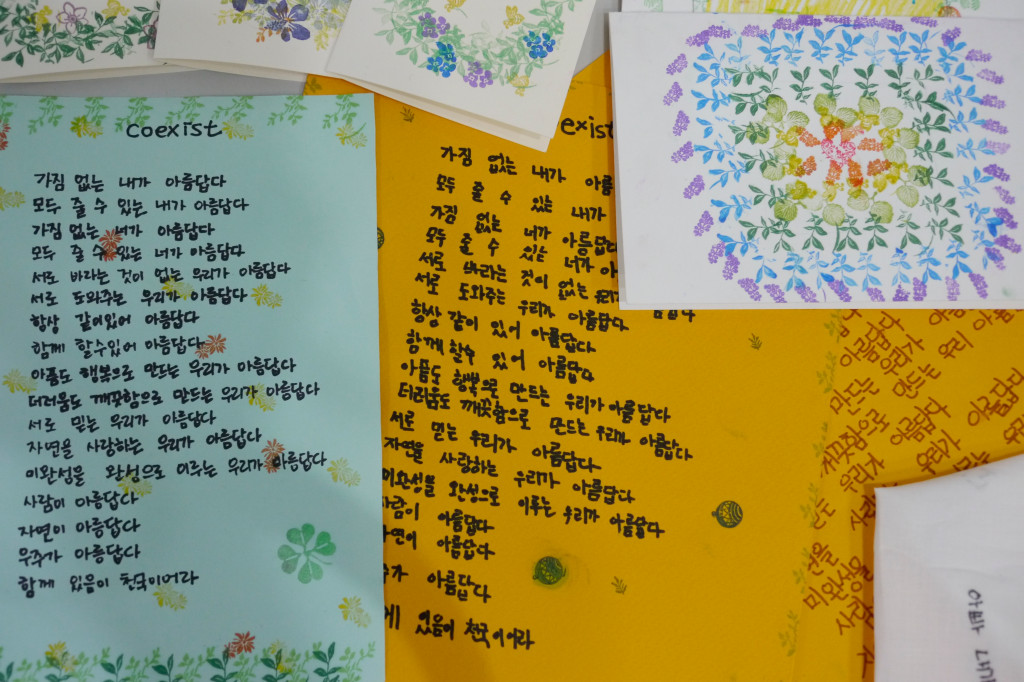 coexist
가짐 없는 내가 아름답다
모두 줄 수 있는 내가 아름답다
가짐 없는 너가 아름답다
모두 줄 수 있는 너가 아름답다
서로 바라는 것이 없는 우리가 아름답다
서로 도와주는 우리가 아름답다
항상 같이있어 아름답다
함께 할수있어 아름답다
아픔도 행복으로 만드는 우리가 아름답다
더러움도 깨끗함으로 만드는 우리가 아름답다
서로 믿는 우리가 아름답다
자연을 사랑하는 우리가 아름답다
미완성을 완성으로 이루는 우리가 아름답다
사람이 아름답다
자연이 아름답다
우주가 아름답다
함께 있음이 천국이어라
exist
가짐 없는 내가 아름
모두 줄 수 있는 내가
가짐 없는 너가 아름답다
모두 줄 수 있는 너가 아
서로 바라는 것이 없는 우리
서로 도와주는 우리가 아름답다
항상 같이 있어 아름답다
함께 할수 있어 아름답다
아픔도 행복으로 만드는 우리가 아름답다
더러움도 깨끗함으로 만드는 우리가 아름답다
서로 믿는 우리가 아름답다
자연을 사랑하는 우리가 아름답다
미완성을 완성으로 이루는 우리가 아름답다
사람이 아름답다
자연이 아름답다
아름답다
있음이 천국이어라
아름답다
우리가
만드는
우리
아름답다
우리가
아름답다
미완성을
사람